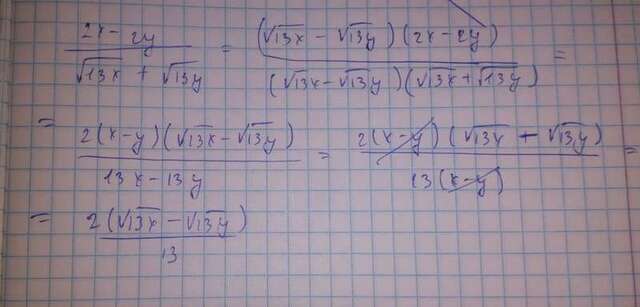 (2x - 2y)/(√13x + √13y) = ((√13x - √13y)(2x - 2y))/((√13x - √13y)(√13x + √13y)) =
= (2(x-y)(√13x - √13y))/(13x - 13y) = (2(x-y)(√13x + √13y))/(13(x-y)) =
= (2(√13x - √13y))/13